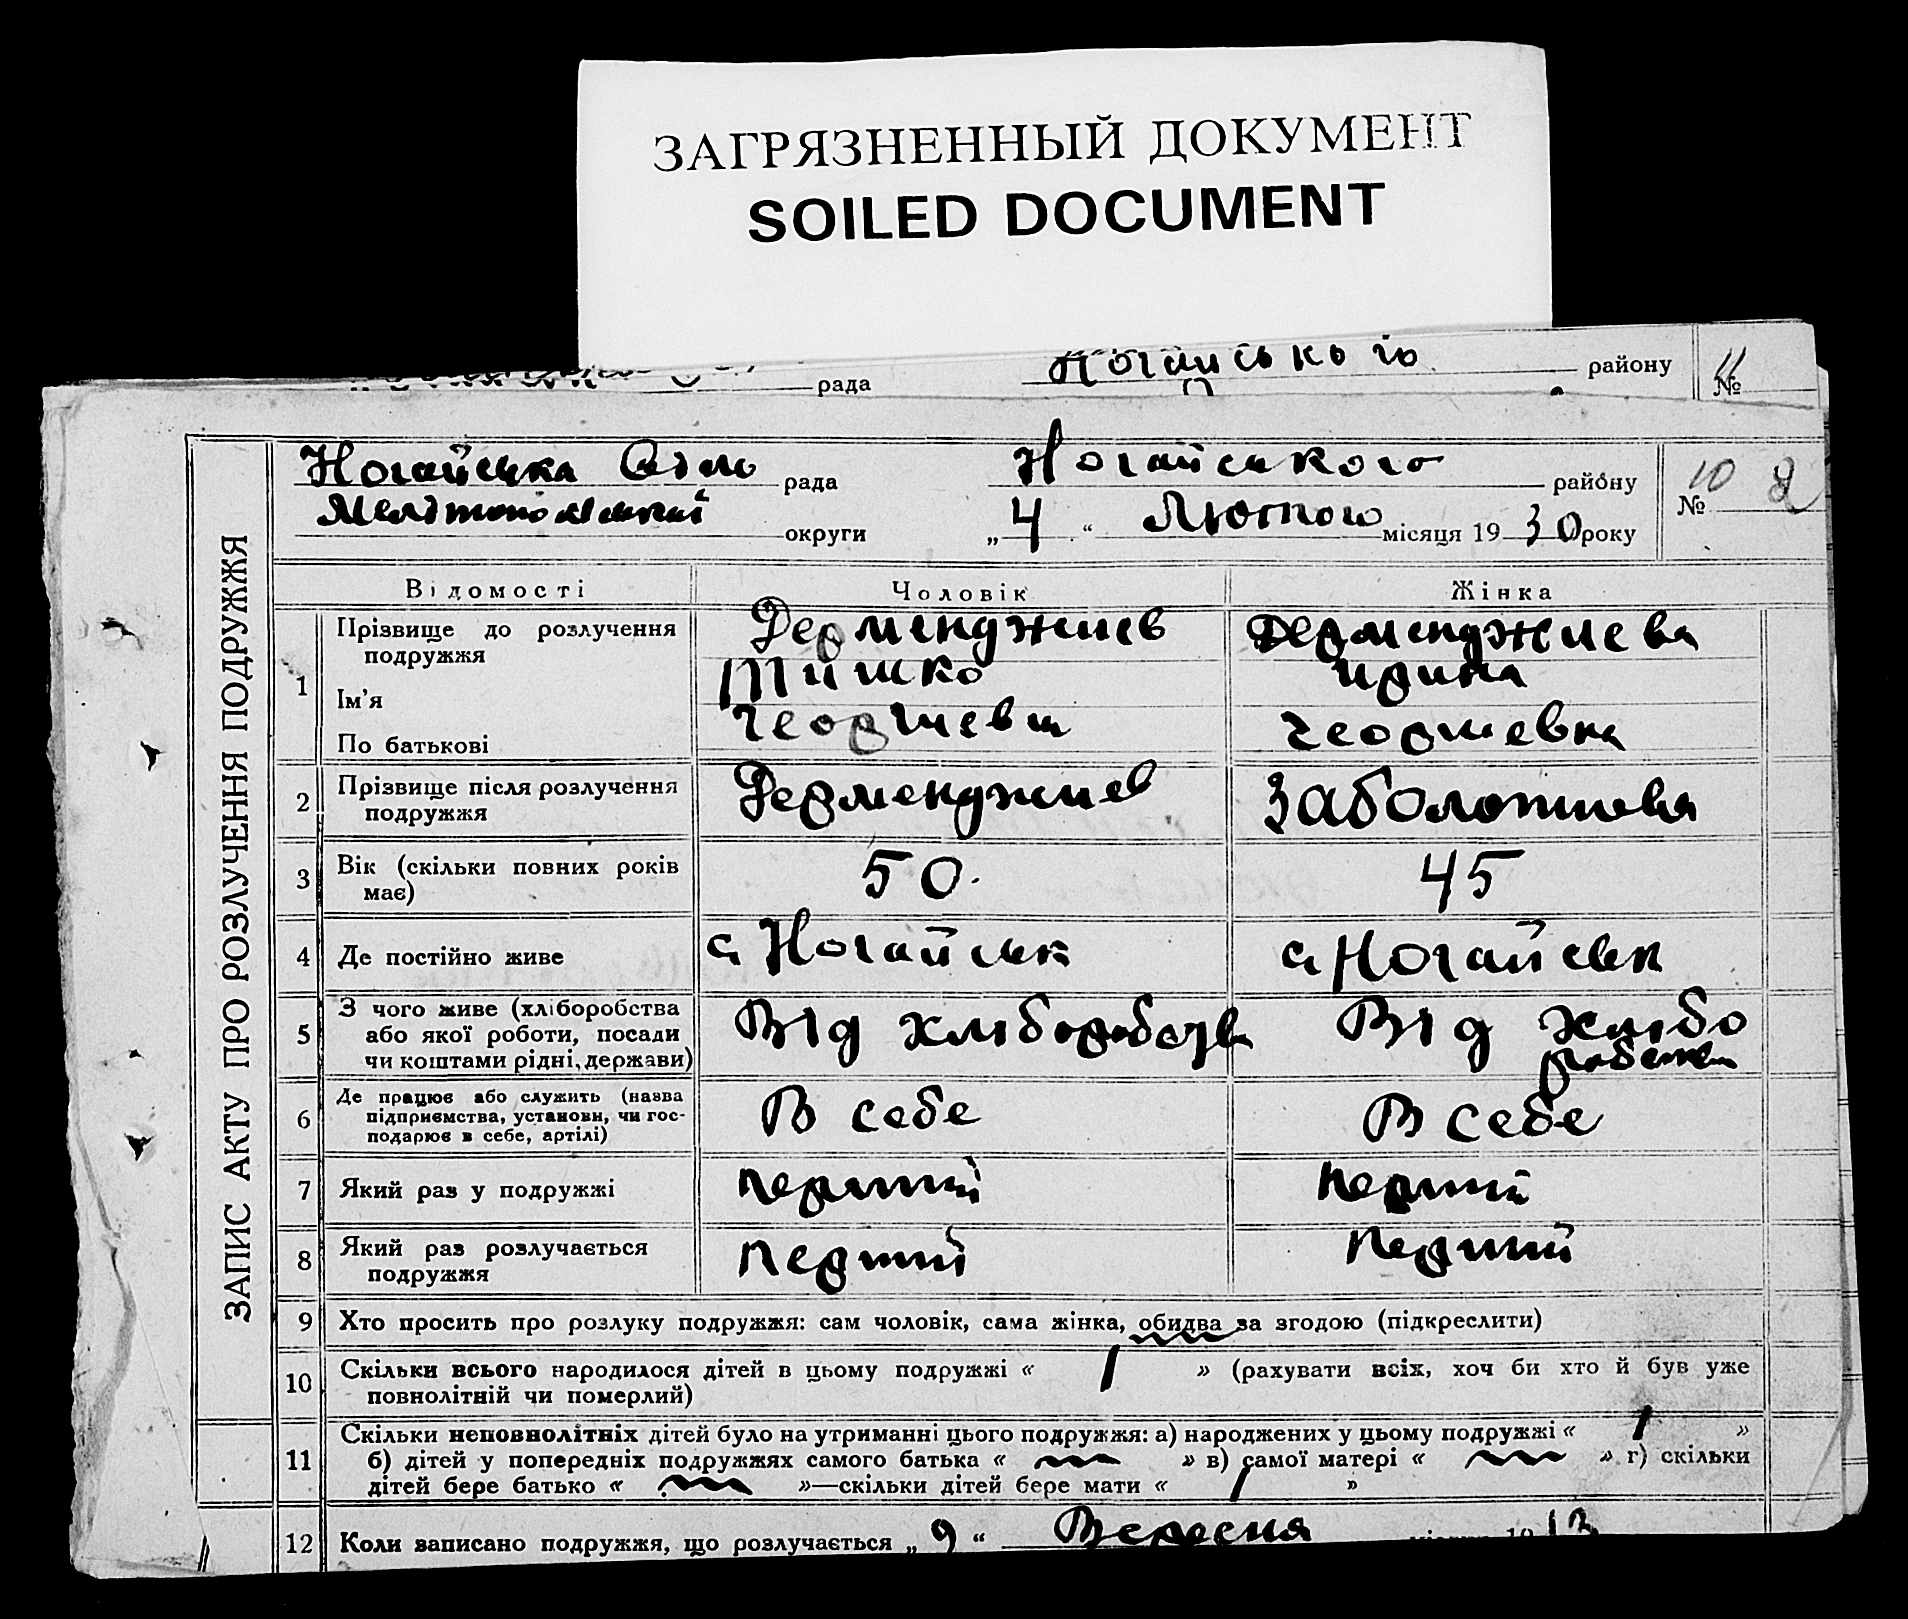 ЗАГРЯЗНЕННЫЙ ДОКУМЕНТ
SOILED DOCUMENT
рада Ногайського району № 11
Ногайська рада Ногайського району № 10
округи „4“ Лютого місяця 1930 року
ЗАПИС АКТУ ПРО РОЗЛУЧЕННЯ ПОДРУЖЖЯ
Відомості Чоловік Жінка
1 Прізвище до розлучення подружжя Дерменджиев Дерменджиева
Ім'я Тишко Ирина
По батькові Георгиевич Георгиевна
2 Прізвище після розлучення подружжя Дерменджиев
3 Вік (скільки повних років має) 50. 45
4 Де постійно живе с. Ногайськ с. Ногайськ
5 З чого живе (хліборобства або якої роботи, посади чи коштами рідні, держави) Від хліборобства Від хлібо
робства
6 Де працює або служить (назва підприємства, установи, чи господарює в себе, артілі) В себе В себе
7 Який раз у подружжі перший перший
8 Який раз розлучається подружжя перший перший
9 Хто просить про розлуку подружжя: сам чоловік, сама жінка, обидва за згодою (підкреслити)
10 Скільки всього народилося дітей в цьому подружжі « 1 » (рахувати всіх, хоч би хто й був уже
повнолітній чи померлий)
11 Скільки неповнолітніх дітей було на утриманні цього подружжя: а) народжених у цьому подружжі « 1 »
б) дітей у попередніх подружжях самого батька « » в) самої матері « » г) скільки
дітей бере батько « »—скільки дітей бере мати « 1 »
12 Коли записано подружжя, що розлучається „9“ Вересня місяця 1913